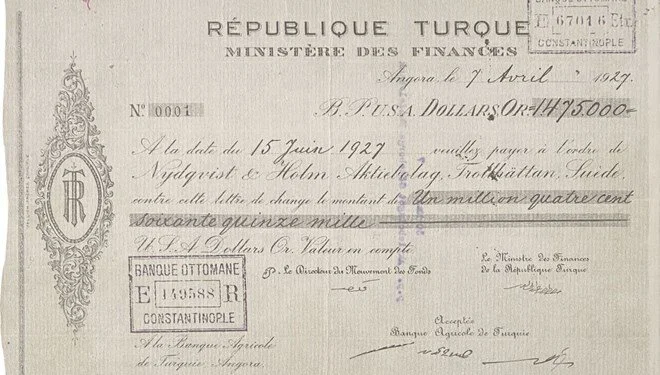 BANQUE OTTOMANE
E 67016 Etr.
CONSTANTINOPLE
RÉPUBLIQUE TURQUE
MINISTÈRE DES FINANCES
Angora, le 7 Avril 1927.
No. 0001 B. P. U.S.A. DOLLARS OR=1475.000=
A la date du 15 Juin 1927 veuillez payer à l'ordre de
Nydqvist & Holm Aktiebolag, Trollhättan, Suède,
contre cette lettre de change le montant de Un million quatre cent
soixante quinze mille
U. S. A. Dollars Or. Valeur en compte
BANQUE OTTOMANE
E 149588 R
CONSTANTINOPLE
p. Le Directeur du Mouvement des Fonds
Le Ministre des Finances
de la République Turque
Acceptée
Banque Agricole de Turquie
A la Banque Agricole
de Turquie, Angora.
TR